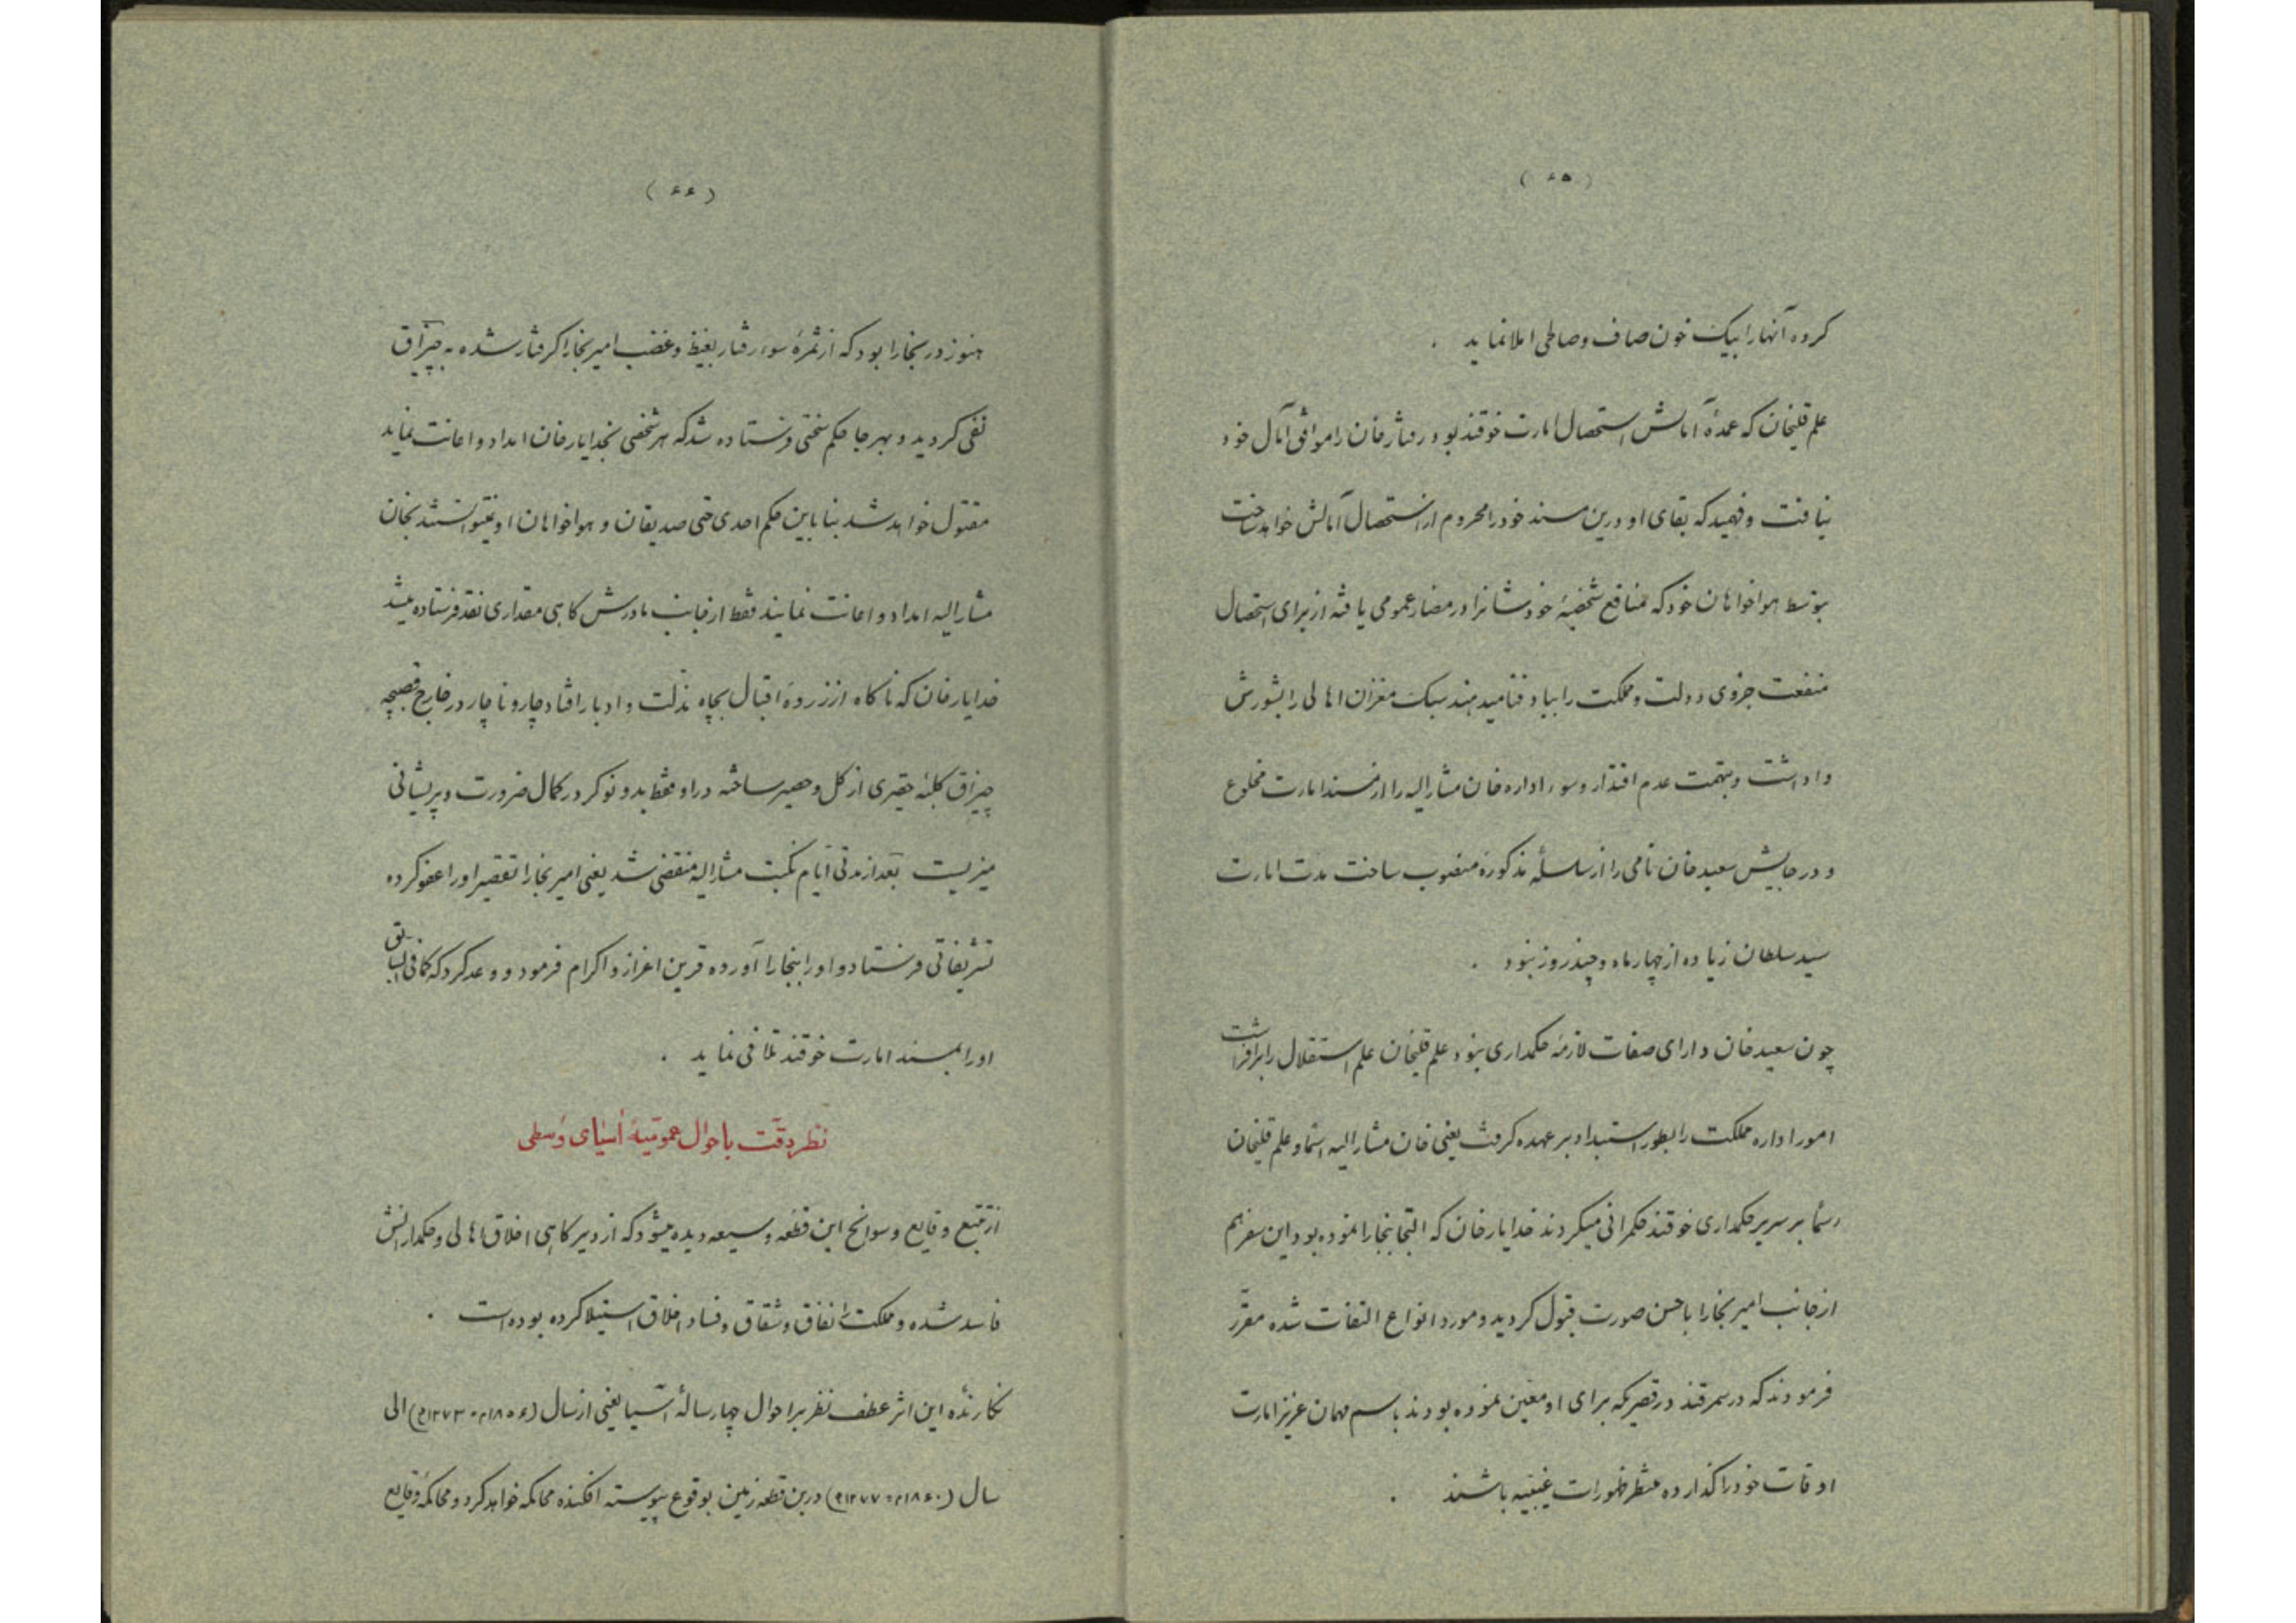 (۶۵)
کروه آنهارا بیک خون صاف وصاطی املا نماید .
علم قلیخان که عمدهٔ آمالش استحصال امارت خوقند بود رفتار خان را موافق آمال خود
نیافت وفهمید که بقای او درین مسند خودرا محروم از استحصال آمالش خواهد ساخت
بتوسط هواخواهان خود که منافع شخصیهٔ خودشانرا در مضار عمومی یافته از برای استحصال
منفعت جزوی دولت ومملکت را بباد فنا میدهند سبک مغزان اهالی را بشورش
واداشت وبتهمت عدم اقتدار وسوء اداره خان مشارالیه را از مسند امارت مخلوع
و در جایش سعید خان نامی را از سلسلهٔ مذکوره منصوب ساخت مدت امارت
سید سلطان زیاده از چهار ماه وچند روز نبود .
چون سعید خان دارای صفات لازمهٔ حکمداری نبود علم قلیخان علم استقلال را برافراشت
امور اداره مملکت را بطور استبداد بر عهده کرفت یعنی خان مشارالیه اسماً و علم قلیخان
رسماً بر سریر حکمداری خوقند حکمرانی میکردند خدایار خان که التجا ببخارا نموده بود این سفر هم
از جانب امیر بخارا باحسن صورت قبول کردید ومورد انواع التفات شده مقرّر
فرمودند که در سمرقند در قصریکه برای او معین نموده بودند باسم مهمان عزیز امارت
اوقات خودرا کذارده منتظر ظهورات غیبیه باشند .
(۶۶)
هنوز در بخارا بود که از ثمرهٔ سوء رفتار بغیظ وغضب امیر بخارا کرفتار شده به چیزاق
نفی کردید و بهرجا حکم سختی فرستاده شد که هر شخصی بخدایار خان امداد واعانت نماید
مقتول خواهد شد بنا باین حکم احدی حتی صدیقان و هواخواهان او نمیتوانستند بخان
مشارالیه امداد واعانت نمایند فقط از جانب مادرش کاهی مقداری نقد فرستاده میشد
خدایار خان که ناکاه از زروهٔ اقبال بچاه مذلت وادبار افتاد چار و ناچار در خارج قصبچه
چیزاق کلبهٔ حقیری از کل وحصیر ساخته در او محظ بدو نوکر در کمال ضرورت وپریشانی
میزیست بعد از مدتی ایام نکبت مشارالیه منقضی شد یعنی امیر بخارا تقصیر اورا عفو کرده
تشریفاتی فرستاد واورا ببخارا آورده قرین اعزاز واکرام فرمود ووعد کرد که کما فی السابق
اورا بمسند امارت خوقند تلافی نماید .
نظر دقّت باحوال عمومیّهٔ آسیای وسطی
از تتبع وقایع وسوانح این قطعهٔ وسیعه دیده میشود که از دیر کاهی اخلاق اهالی وحکمدارانش
فاسد شده ومملکت را نفاق وشقاق وفساد اخلاق استیلا کرده بوده است .
نکارندهٔ این اثر عطف نظر بر احوال چهار سالهٔ آسیا یعنی از سال (۱۸۵۶م - ۱۲۷۳ه) الی
سال (۱۸۶۰م - ۱۲۷۷ه) درین قطعه زمین بوقوع پیوسته افکنده محاکمه خواهد کرد ومحاکمهٔ وقایع